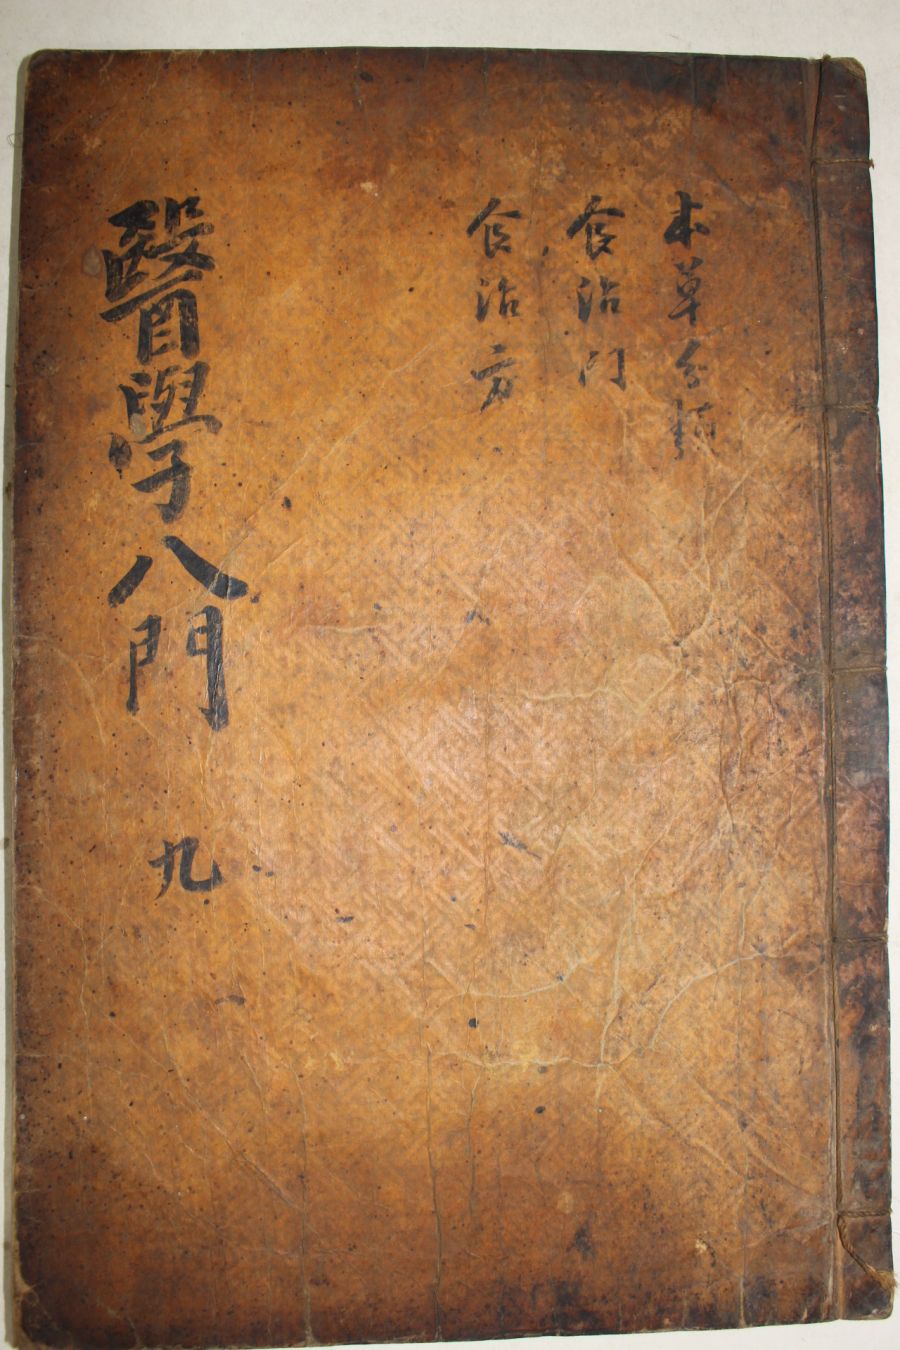 本草分類
食治門
食治方
醫學八門 九